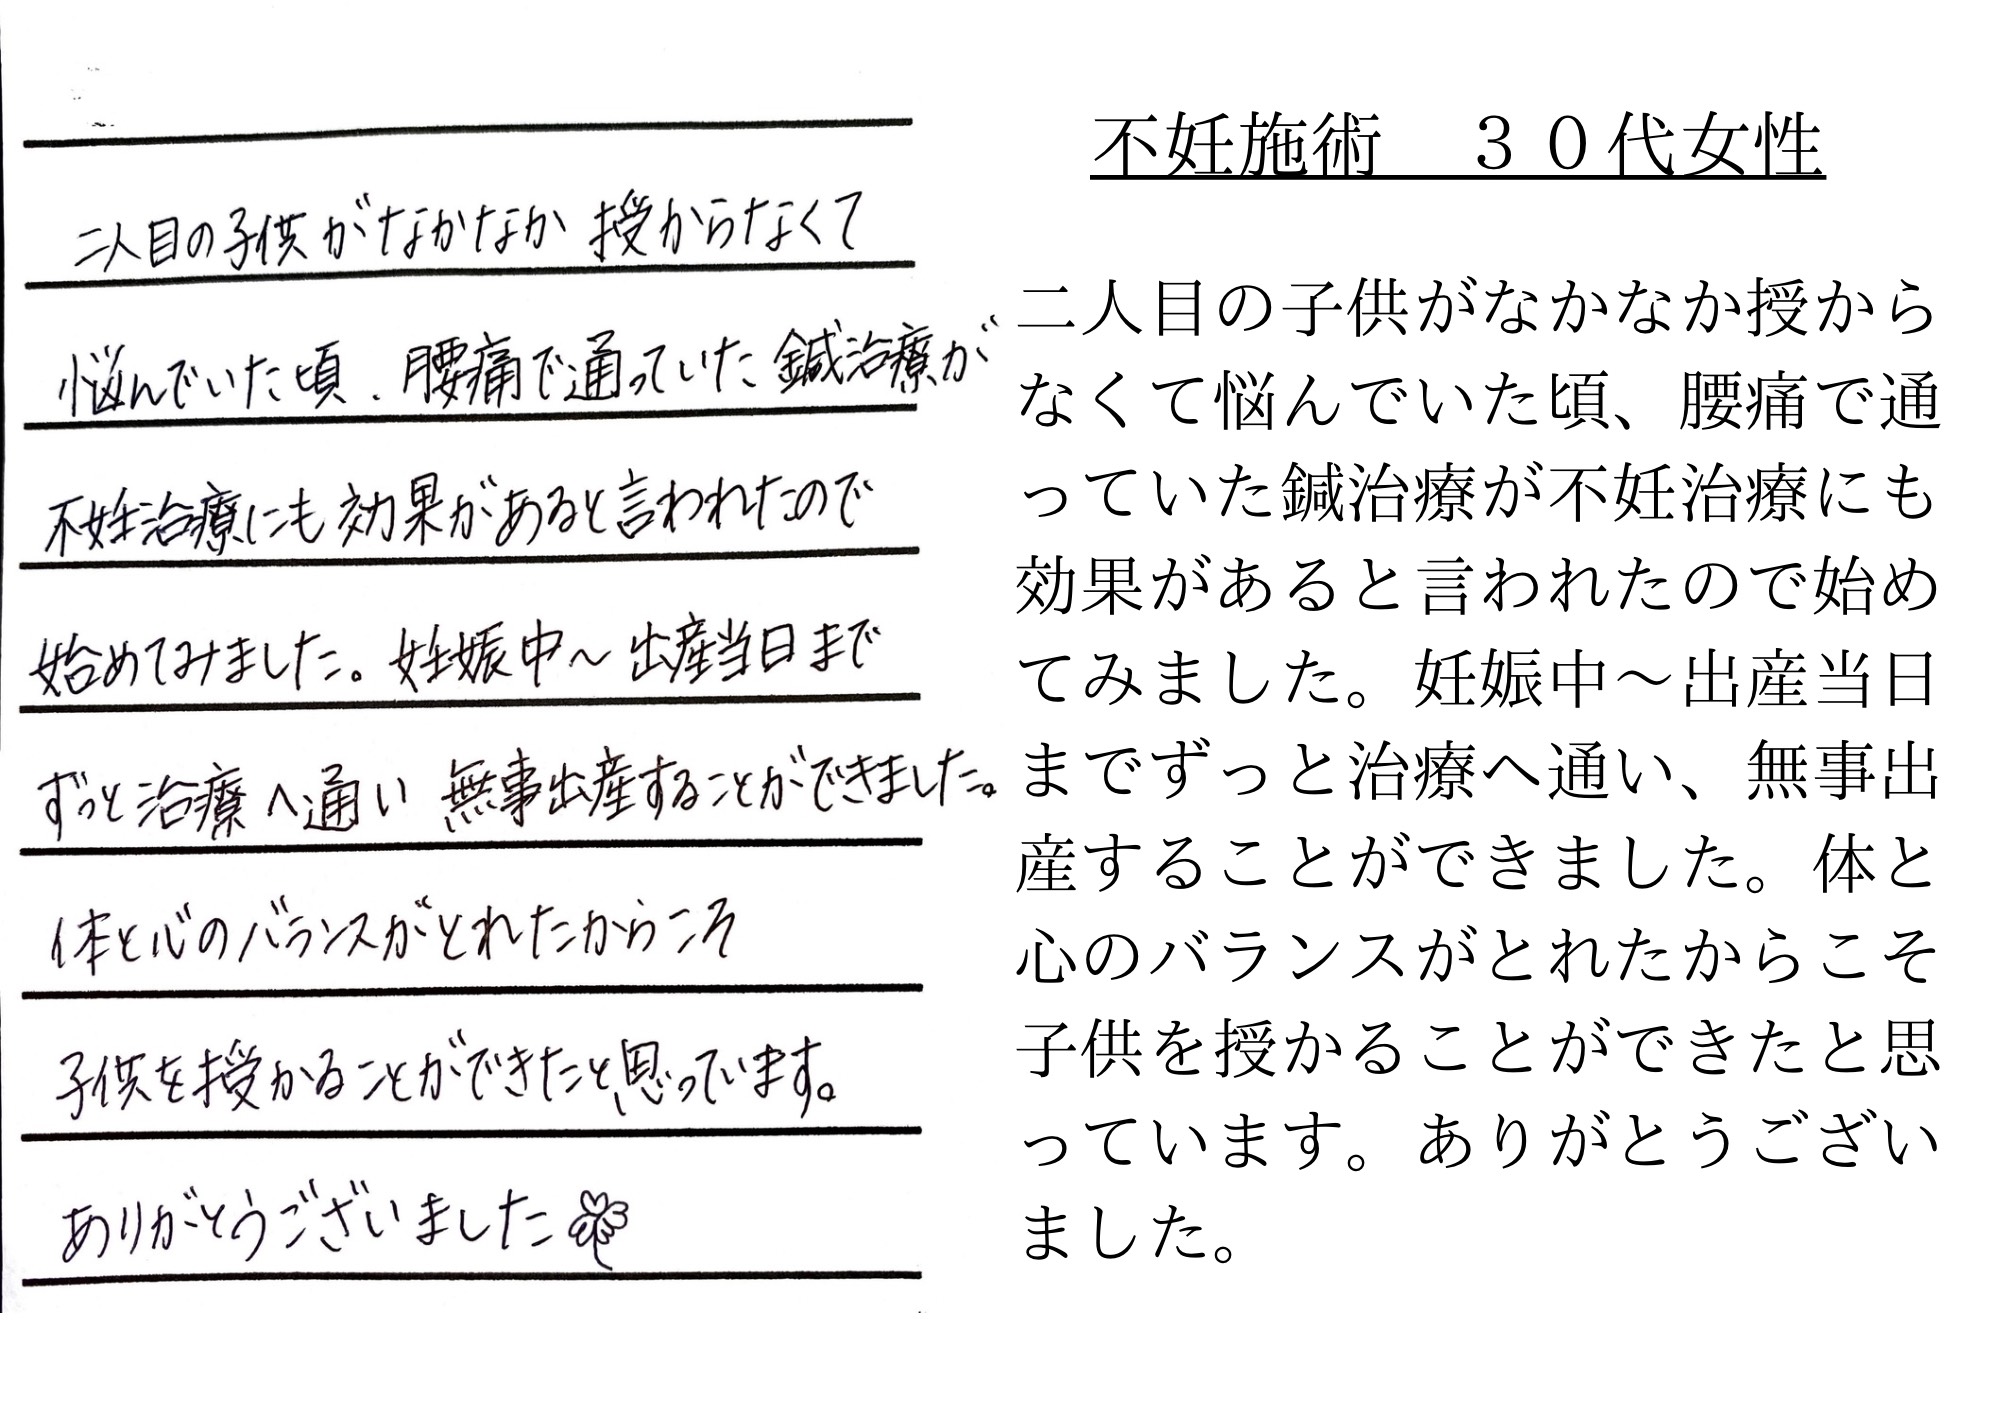 二人目の子供がなかなか授からなくて
悩んでいた頃、腰痛で通っていた鍼治療が
不妊治療にも効果があると言われたので
始めてみました。妊娠中～出産当日まで
ずっと治療へ通い 無事出産することができました。
体と心のバランスがとれたからこそ
子供を授かることができたと思っています。
ありがとうございました
不妊施術　３０代女性
二人目の子供がなかなか授から
なくて悩んでいた頃、腰痛で通
っていた鍼治療が不妊治療にも
効果があると言われたので始め
てみました。妊娠中～出産当日
までずっと治療へ通い、無事出
産することができました。体と
心のバランスがとれたからこそ
子供を授かることができたと思
っています。ありがとうござい
ました。